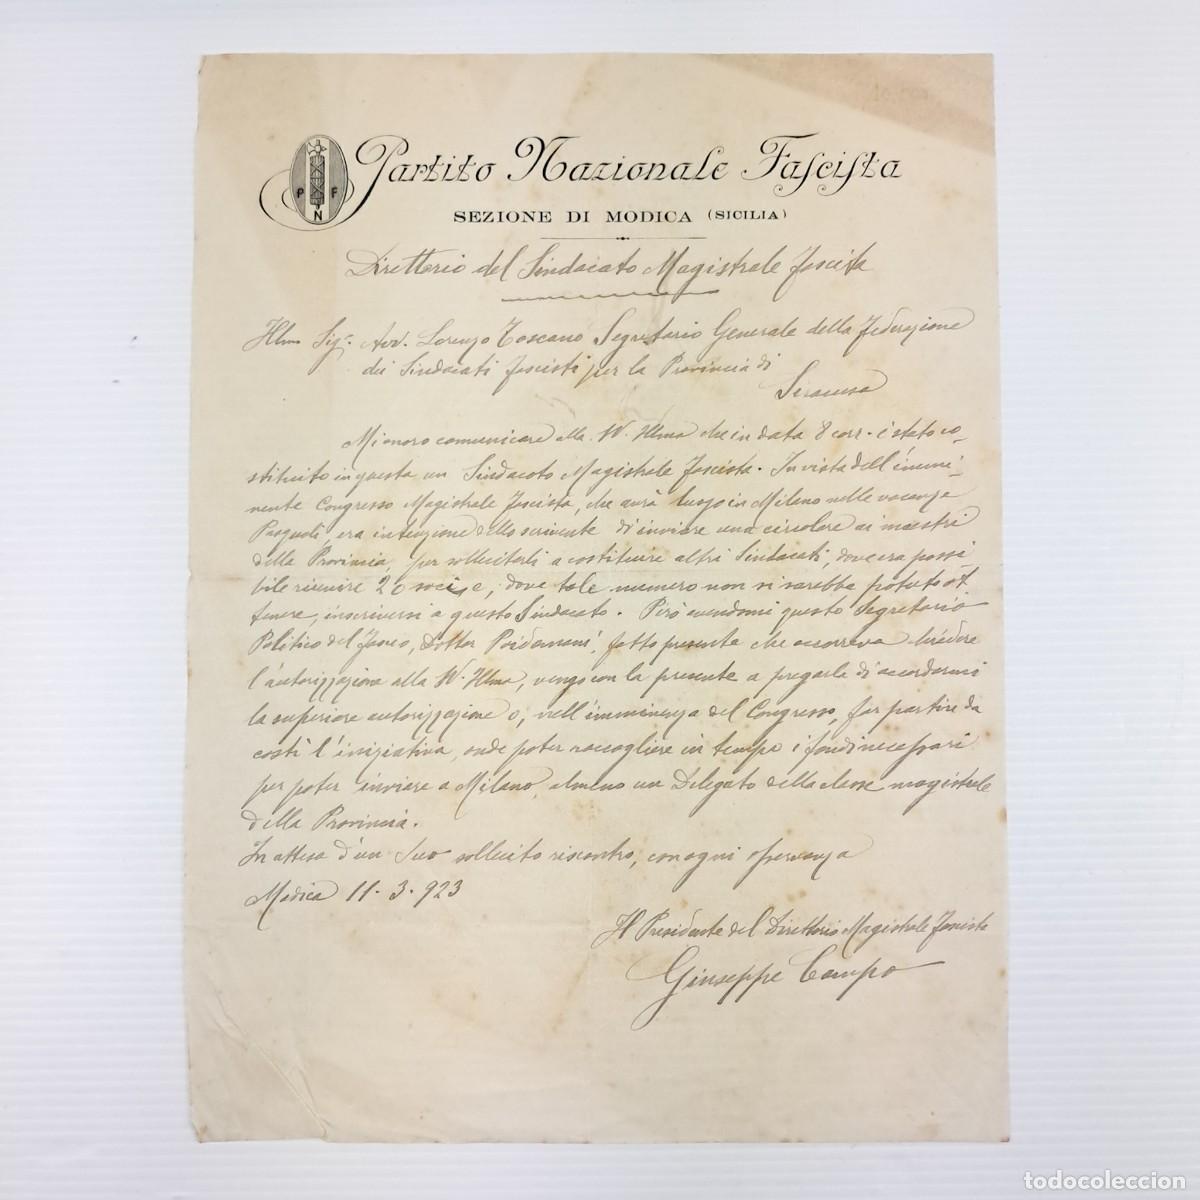 P F
N
Partito Nazionale Fascista
SEZIONE DI MODICA (SICILIA)
Direttorio del Sindacato Magistrale Fascista
Illmo Sig. Avv. Lorenzo Toscano Segretario Generale della Federazione
dei Sindacati fascisti per la Provincia di
Siracusa
Mi onoro comunicare alla W. Illma che in data 8 corr. è stato co-
stituito in questa un Sindacato Magistrale Fascista. In vista dell'immi-
nente Congresso Magistrale Fascista, che avrà luogo in Milano nelle vacanze
Pasquali, era intenzione dello scrivente d'inviare una circolare ai maestri
della Provincia, per sollecitarli a costituire altri Sindacati, dove era possi
bile riunire 20 soci, e, dove tale numero non si sarebbe potuto ot
tenere, inscriversi a questo Sindacato. Però avendomi questo Segretario
Politico del Fascio, Dottor fatto presente che occorreva chiedere
l'autorizzazione alla W. Illma, vengo con la presente a pregarla di accordarmi
la superiore autorizzazione o, nell'imminenza del Congresso, far partire da
costì l'iniziativa, onde poter raccogliere in tempo i fondi necessari
per poter inviare a Milano, almeno un Delegato della classe magistrale
della Provincia.
In attesa d'un Suo sollecito riscontro, con ogni osservanza
Modica 11-3-923
Il Presidente del Direttorio Magistrale Fascista
Giuseppe Campo
todocoleccion